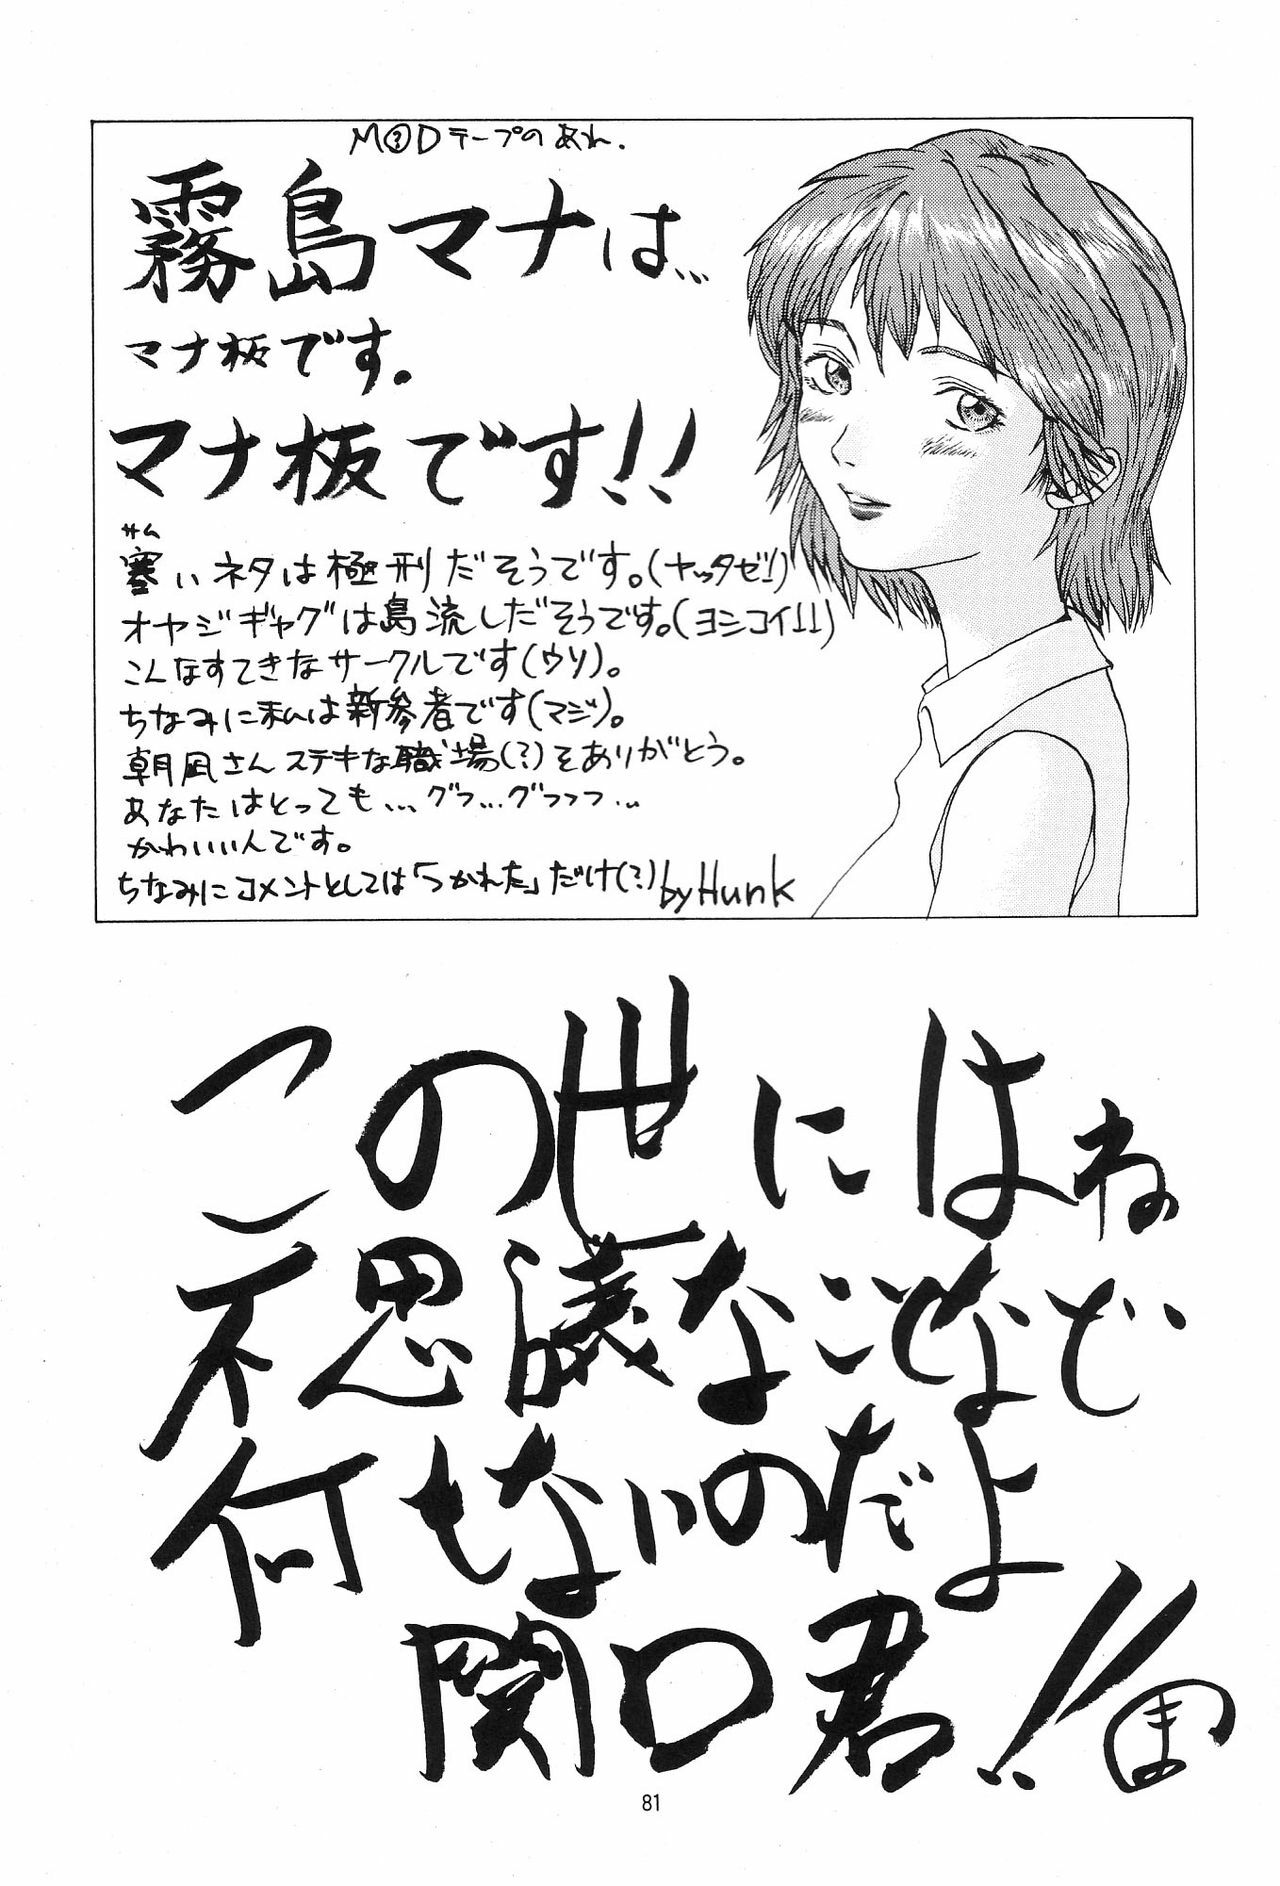 M?Dテープのあれ.
霧島マナは...
マナ板です。
マナ板です!!
サム
寒いネタは極刑だそうです。(ヤッタゼ!)
オヤジギャグは島流しだそうです。(ヨシコイ!!)
こんなすてきなサークルです(ウソ)。
ちなみに私は新参者です(マジ)。
朝凪さんステキな職場(?)をありがとう。
あなたはとっても...グフ...グフフフ...
かわいい人です。
ちなみにコメントとしては「つかれた」だけ(?)
by Hunk
この世にはね
不思議なことなど
何もないのだよ
関口君!!
81